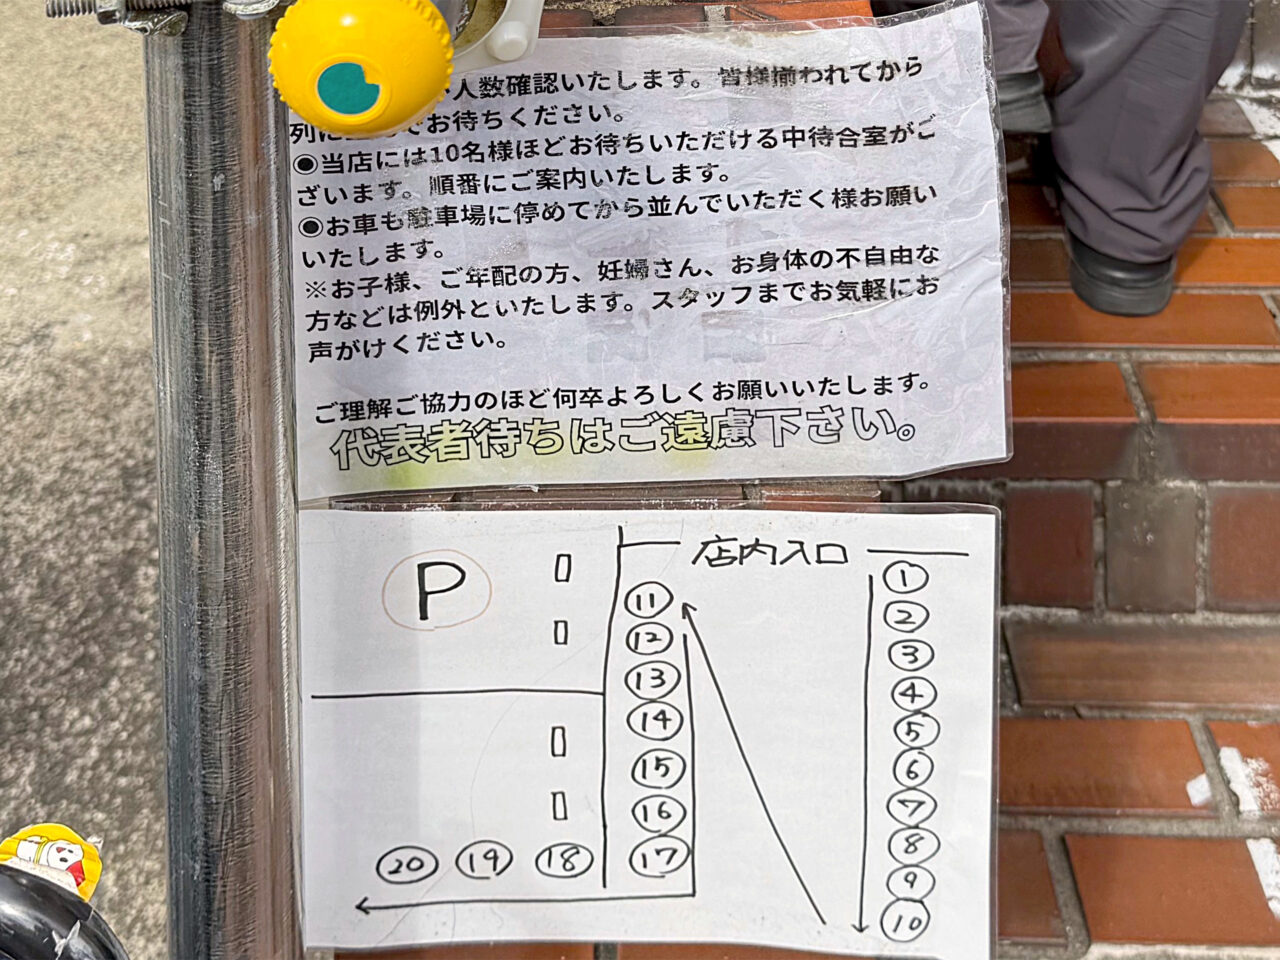 人数確認いたします。皆様揃われてから
列に でお待ちください。
◉当店には10名様ほどお待ちいただける中待合室がご
ざいます。順番にご案内いたします。
◉お車も駐車場に停めてから並んでいただく様お願い
いたします。
※お子様、ご年配の方、妊婦さん、お身体の不自由な
方などは例外といたします。スタッフまでお気軽にお
声がけください。
ご理解ご協力のほど何卒よろしくお願いいたします。
代表者待ちはご遠慮下さい。
店内入口
P
①
②
③
④
⑤
⑥
⑦
⑧
⑨
⑩
⑪
⑫
⑬
⑭
⑮
⑯
⑰
⑳ ⑲ ⑱